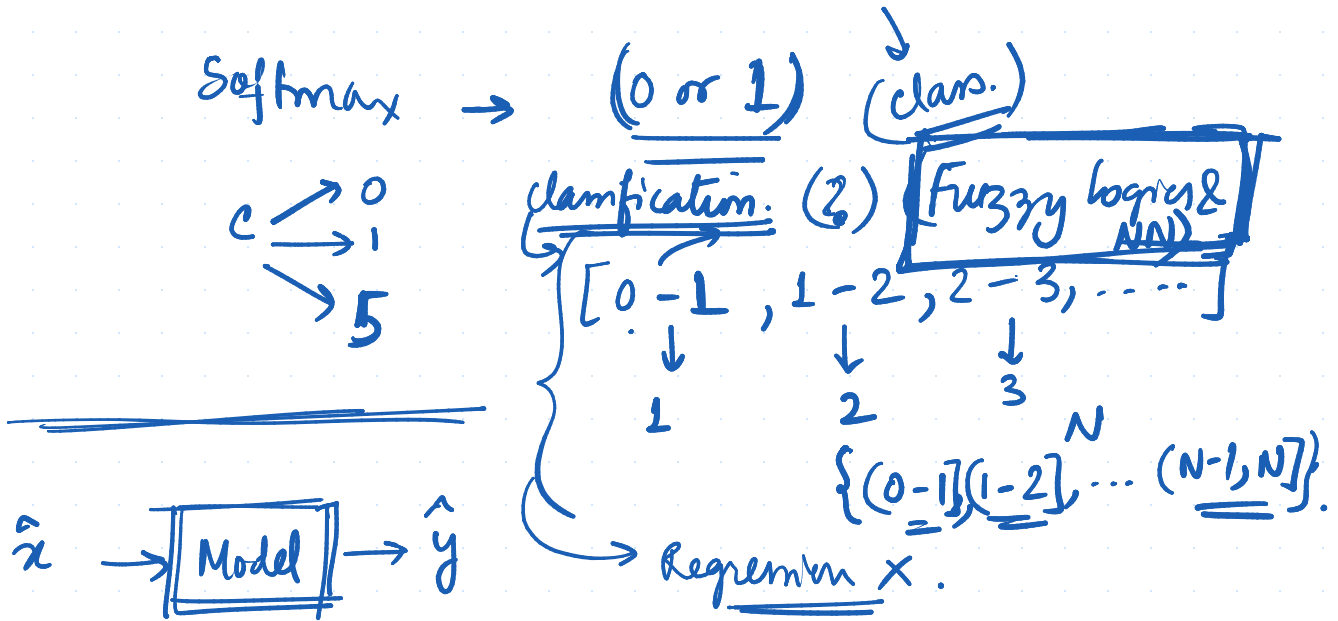 Softmax → (0 or 1) (class.)
classification. (2) (Fuzzy Logics &
NN)
C → 0
→ 1
→ 5
[0 - 1 , 1 - 2 , 2 - 3, ..... ]
↓ ↓ ↓
1 2 3
N
{(0 - 1],(1 - 2], .... (N-1, N]}.
x̂ → Model → ŷ
Regression ×.